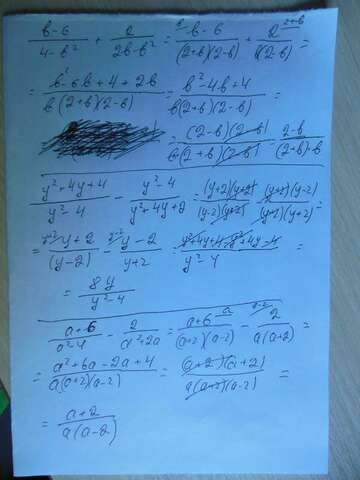 b-6/4-b² + 2/2b-b² = b-6/(2+b)(2-b) + 2/(2-b) =
= b²-6b+4+2b/b(2+b)(2-b) = b²-4b+4/b(2+b)(2-b) =
= (2-b)(2-b)/b(2+b)(2-b) = 2-b/(2+b)b
y²+4y+4/y²-4 - y²-4/y²+4y+2 = (y+2)(y+2)/(y-2)(y+2) - (y+2)(y-2)/(y+2)(y+2) =
= y+2/(y-2) - y-2/y+2 = y²+4y+4-y²+4y-4/y²-4 =
= 8y/y²-4
a+6/a²-4 - 2/a²+2a = a+6/(a+2)(a-2) - 2/a(a+2) =
= a²+6a-2a+4/a(a+2)(a-2) = (a+2)(a+2)/a(a+2)(a-2) =
= a+2/a(a-2)